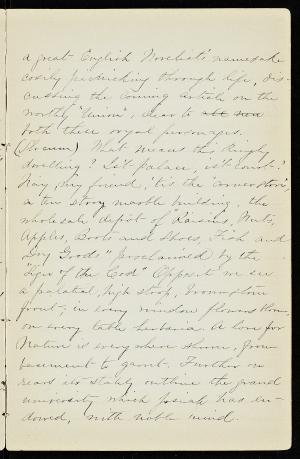 a great English Novelist's namesake
cosily picnicking through life, dis-
cussing the coming article on the
worthy "Union", dear to all men
both these royal personages.
(Slocum) What means this Kingly
dwelling? Is't palace, is't court?
Nay, my friend, 'tis the "corner store",
a ten story marble building, the
wholesale depot of "Raisins, Nuts,
Apples, Boots and Shoes, Fish and
Dry Goods" proclaimed by the
"Sign of the Cod" Opposite we see
a palatial, high stoop, brownstone
front; in every window flowers bloom,
on every table herbaria. A love for
Nature is everywhere shown, from
basement to garret. Further on
rears its stately outline the grand
university which Josiah has en-
dowed, with noble mind.